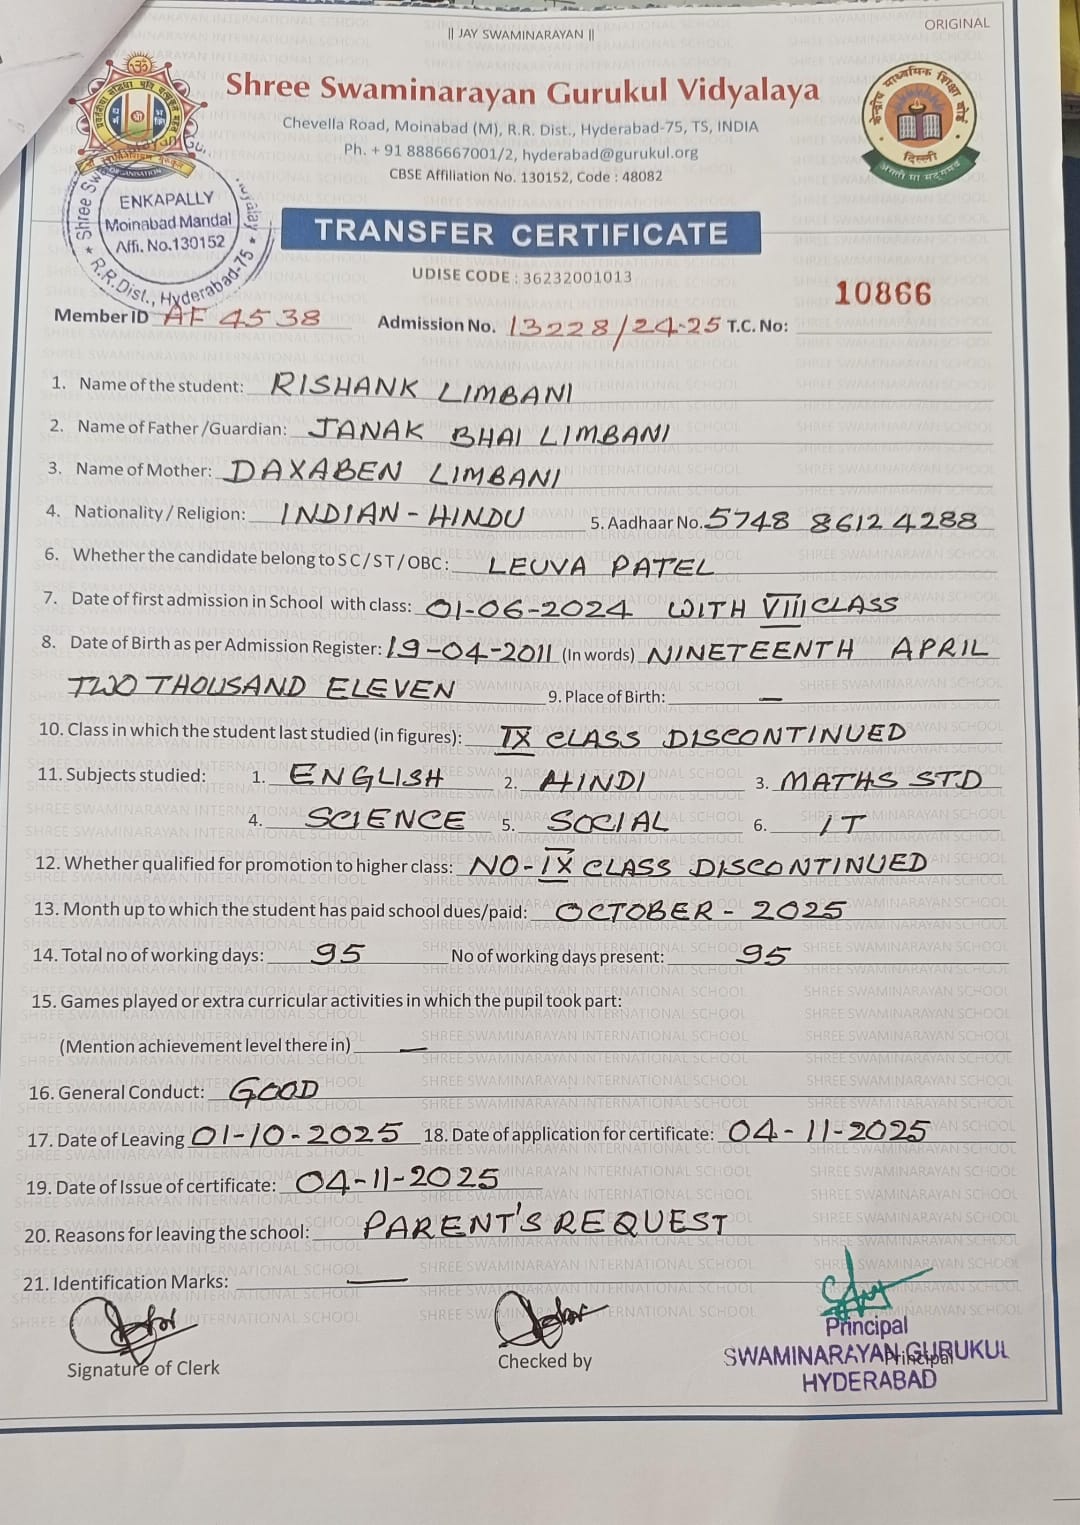 ORIGINAL
|| JAY SWAMINARAYAN ||
Shree Swaminarayan Gurukul Vidyalaya
Chevella Road, Moinabad (M), R.R. Dist., Hyderabad-75, TS, INDIA
Ph. + 91 8886667001/2, hyderabad@gurukul.org
CBSE Affiliation No. 130152, Code : 48082
केन्द्रीय माध्यमिक शिक्षा बोर्ड
दिल्ली
असतो मा सद्गमय
ENKAPALLY
Moinabad Mandal
Affi. No.130152
R.R.Dist., Hyderabad-75
TRANSFER CERTIFICATE
UDISE CODE : 36232001013
10866
Member ID AF 4538 Admission No. 13228/24-25 T.C. No:
1. Name of the student: RISHANK LIMBANI
2. Name of Father /Guardian: JANAK BHAI LIMBANI
3. Name of Mother: DAXABEN LIMBANI
4. Nationality / Religion: INDIAN - HINDU 5. Aadhaar No. 5748 8612 4288
6. Whether the candidate belong to SC/ST/OBC: LEUVA PATEL
7. Date of first admission in School with class: 01-06-2024 WITH VIII CLASS
8. Date of Birth as per Admission Register: 19-04-2011 (In words) NINETEENTH APRIL
TWO THOUSAND ELEVEN 9. Place of Birth: —
10. Class in which the student last studied (in figures): IX CLASS DISCONTINUED
11. Subjects studied: 1. ENGLISH 2. HINDI 3. MATHS STD
4. SCIENCE 5. SOCIAL 6. IT
12. Whether qualified for promotion to higher class: NO-IX CLASS DISCONTINUED
13. Month up to which the student has paid school dues/paid: OCTOBER - 2025
14. Total no of working days: 95 No of working days present: 95
15. Games played or extra curricular activities in which the pupil took part:
(Mention achievement level there in) —
16. General Conduct: GOOD
17. Date of Leaving 01-10-2025 18. Date of application for certificate: 04-11-2025
19. Date of Issue of certificate: 04-11-2025
20. Reasons for leaving the school: PARENT'S REQUEST
21. Identification Marks: —
Signature of Clerk Checked by Principal
Principal
SWAMINARAYAN GURUKUL
HYDERABAD
SHREE SWAMINARAYAN INTERNATIONAL SCHOOL